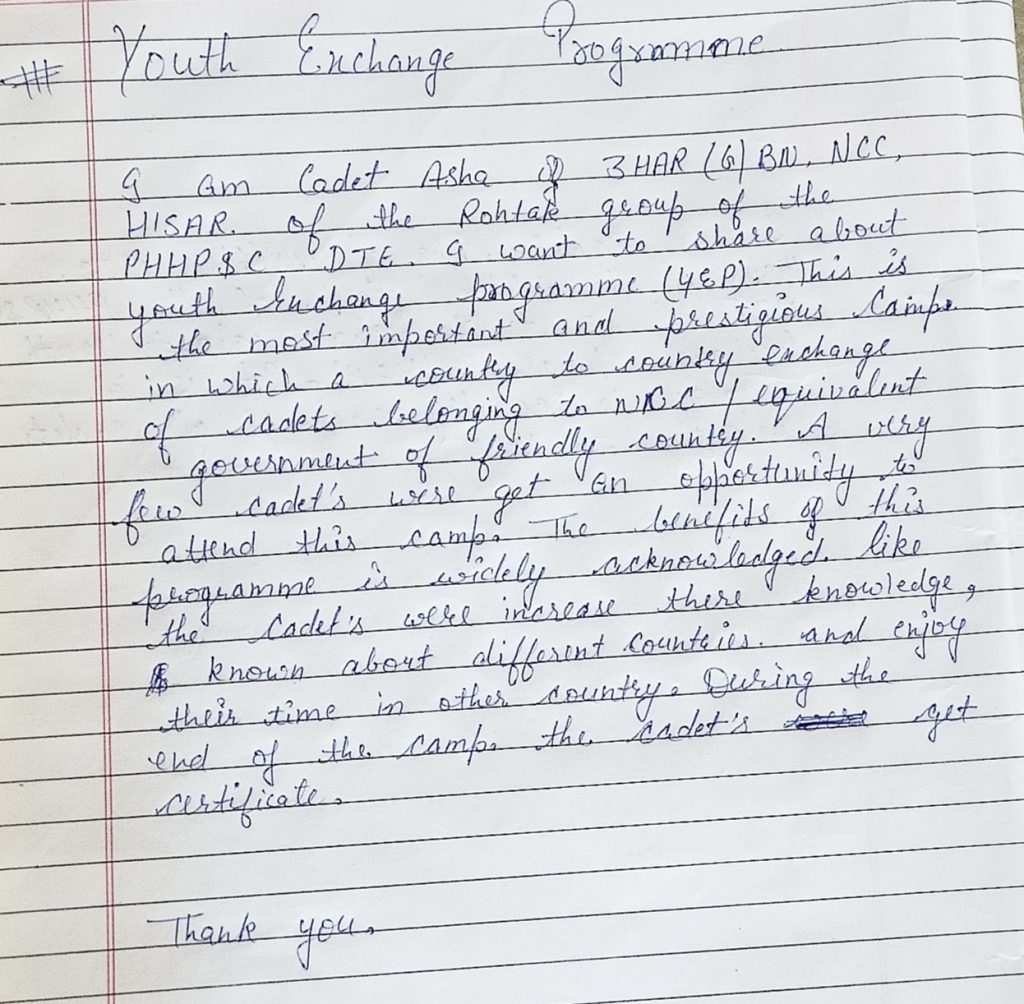 Youth Exchange Programme
I am Cadet Asha of 3 HAR (G) BN. NCC,
HISAR. of the Rohtak group of the
PHHP&C DTE. I want to share about
youth Exchange programme (YEP). This is
the most important and prestigious Camp.
in which a country to country exchange
of cadets belonging to NCC / equivalent
government of friendly country. A very
few cadet's were get an opportunity to
attend this camp. The benefits of this
programme is widely acknowledged. like
the Cadet's were increase there knowledge,
known about different Countries. and enjoy
their time in other country. During the
end of the camp. the cadet's get
certificate.
Thank you.